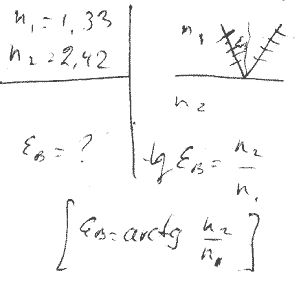 n₁ = 1,33
n₂ = 2,42
ε_B = ?
n₁
ε_B
n₂
tg ε_B = n₂/n₁
[ε_B = arctg n₂/n₁]